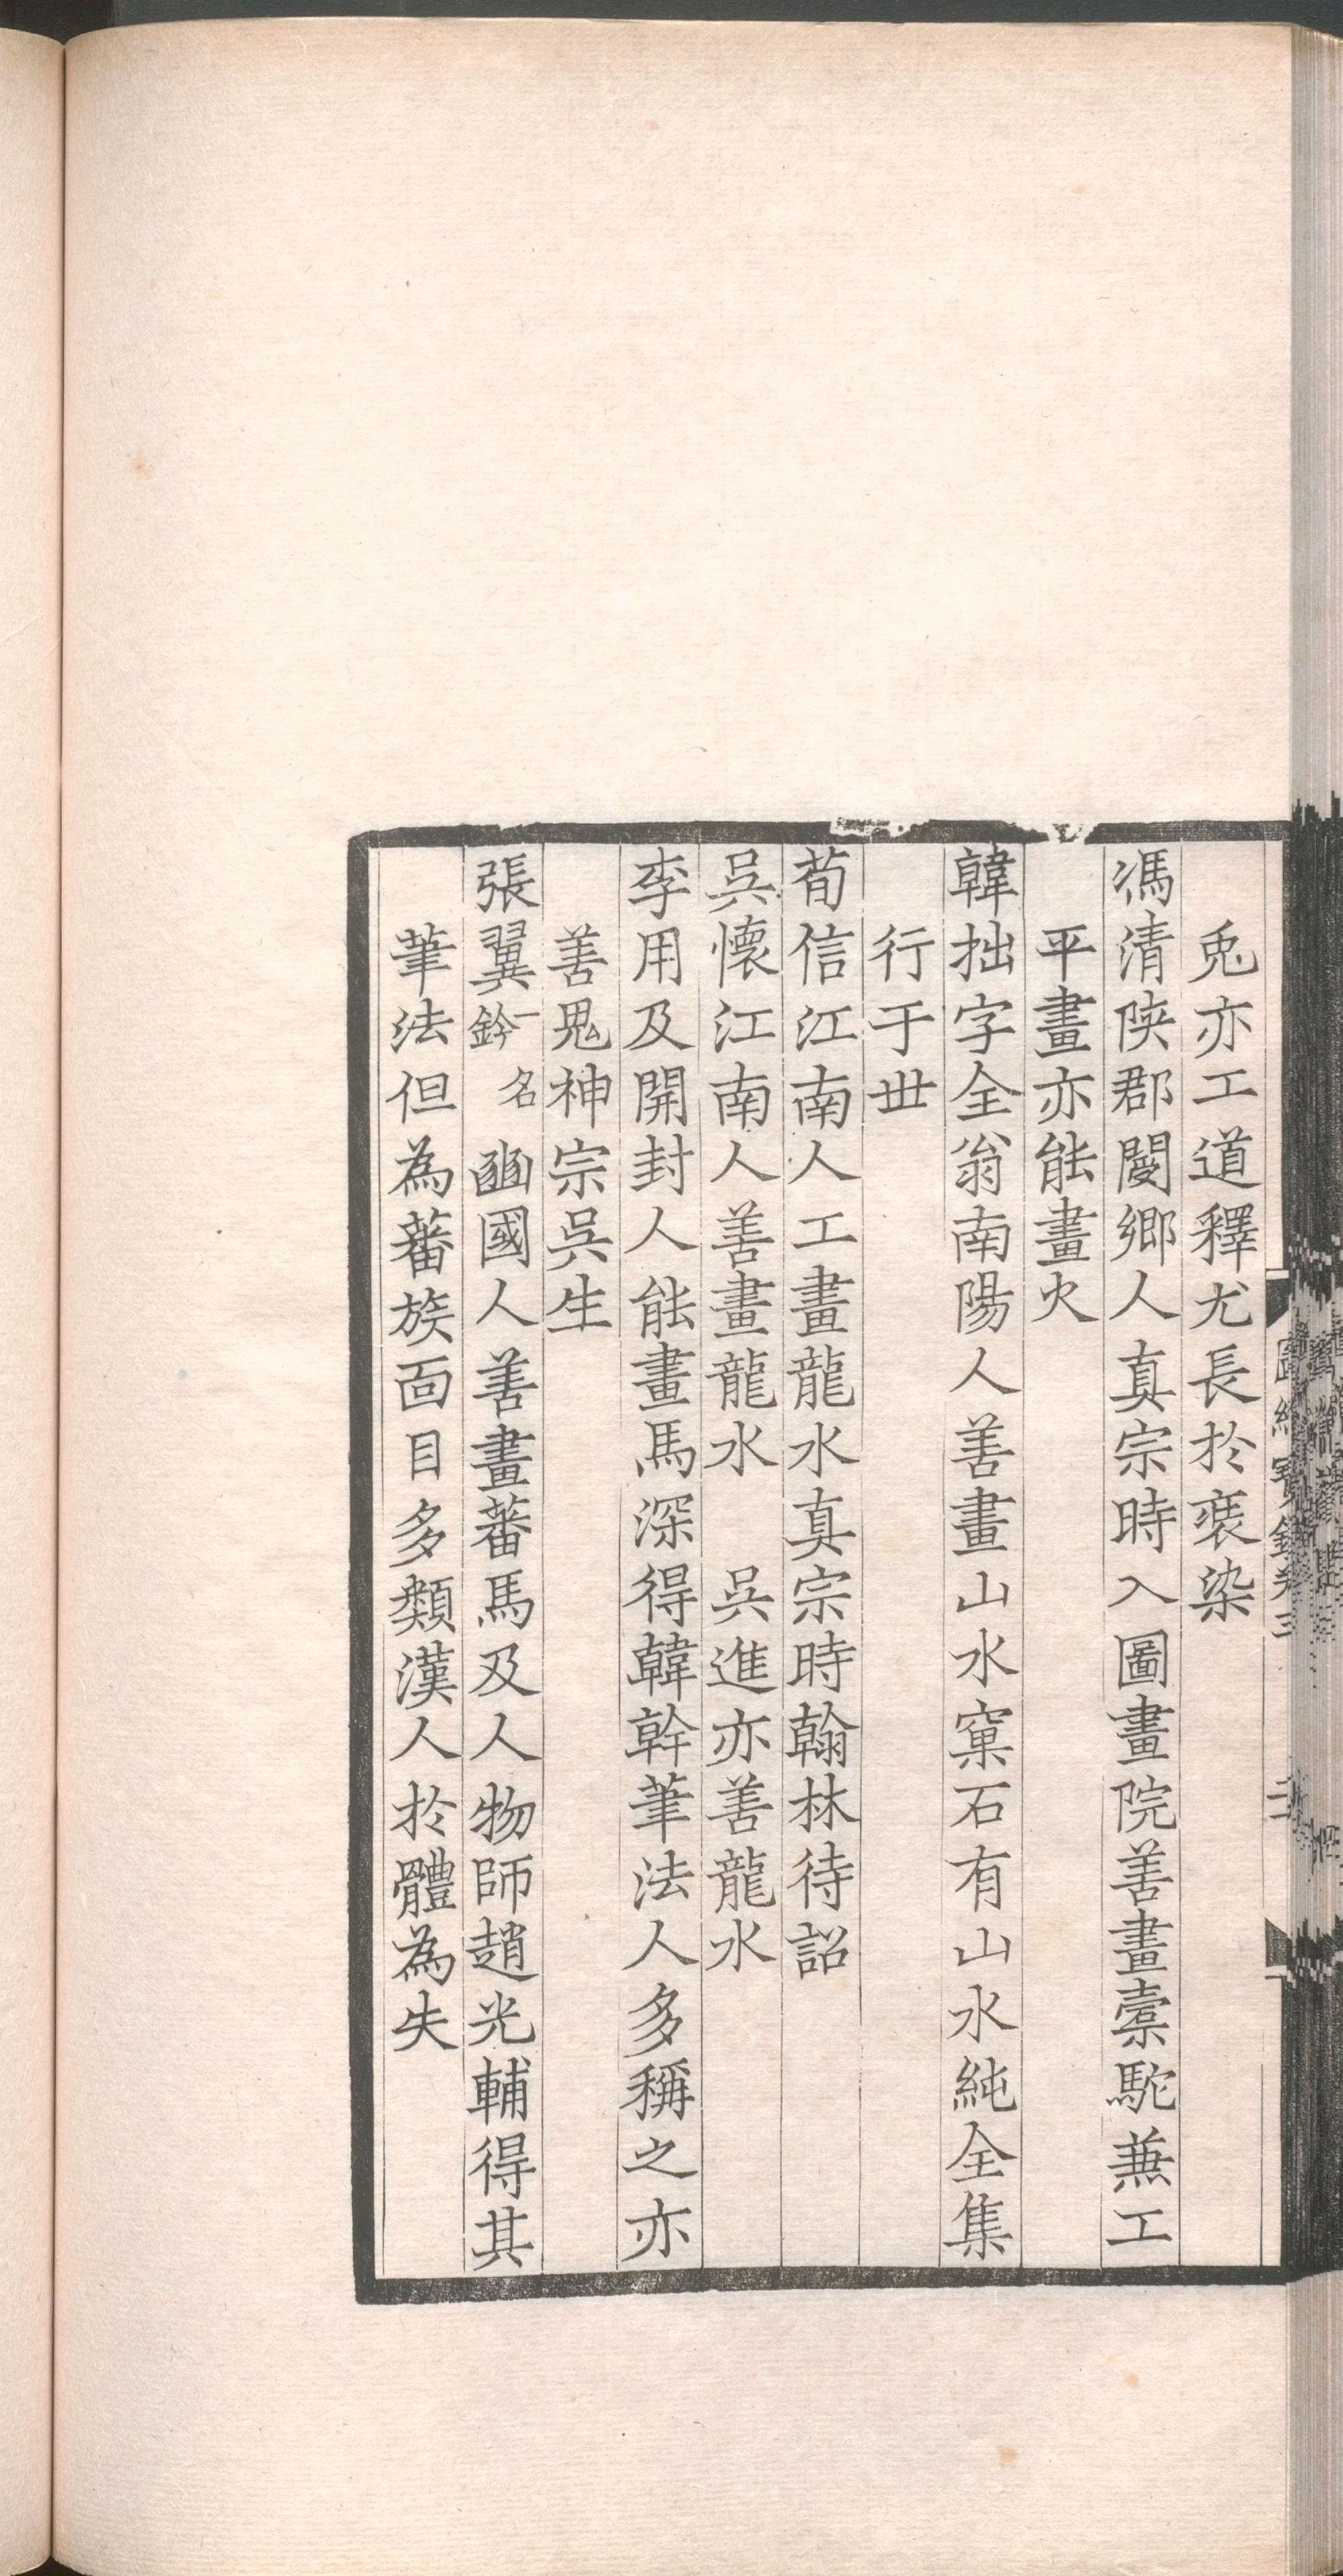 兎亦工道釋尤長於裵染
馮清陝郡閿鄉人真宗時入圖畫院善畫橐駝兼工
平畫亦能畫火
韓拙字全翁南陽人善畫山水窠石有山水純全集
行于丗
荀信江南人工畫龍水真宗時翰林待詔
吳懷江南人善畫龍水　吳進亦善龍水
李用及開封人能畫馬深得韓幹筆法人多稱之亦
善鬼神宗吳生
張翼一名鈐豳國人善畫蕃馬及人物師趙光輔得其
筆法但為蕃族面目多類漢人於體為失